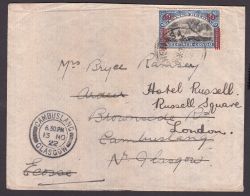 Mrs Bryce Ramsay
Hotel Russell
Russell Square
London.
Cambuslang
Nr Glasgow
Ecosse
CAMBUSLANG
6.30 PM
13 NO
22
GLASGOW